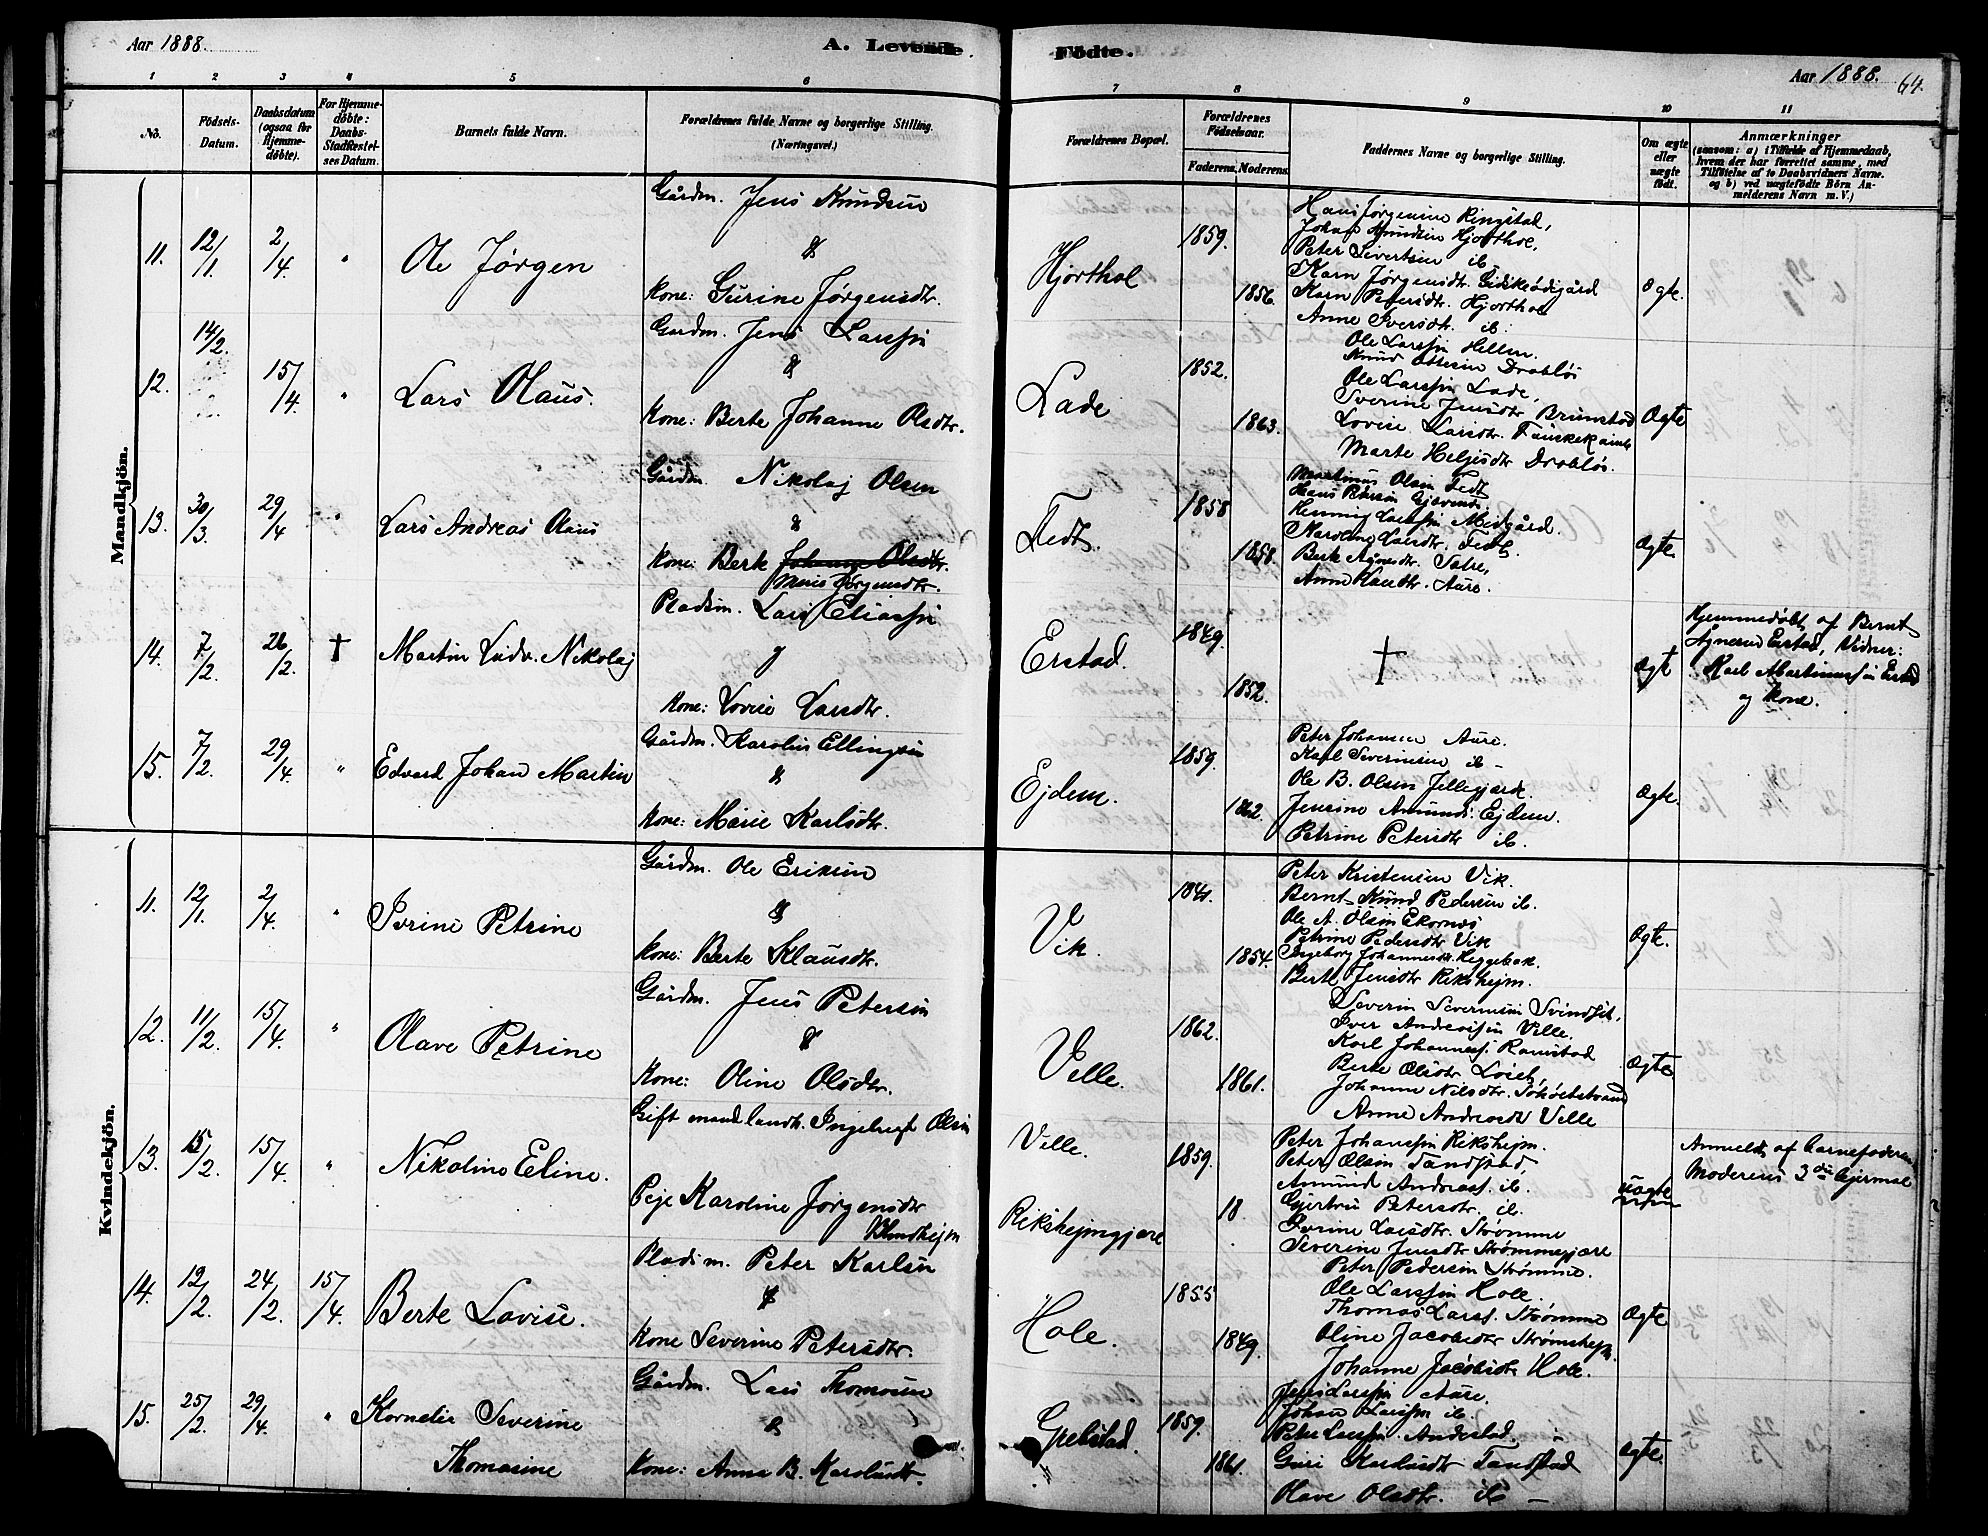 Aar 1888.
A. Levende
Fødte.
Aar 1888.
64.
1 2 3 4 5 6 7 8 9 10 11
No.
Fødsels-
Datum.
Daabsdatum
(ogsaa for
Hjemme-
døbte).
For Hjemme-
døbte:
Daabs-
Stadfæstel-
ses Datum.
Barnets fulde Navn.
Forældrenes fulde Navne og borgerlige Stilling.
(Næringsvei.)
Forældrenes Bopæl.
Forældrenes
Fødselsaar.
Faderens. Moderens.
Faddernes Navne og borgerlige Stilling.
Om ægte
eller
uægte
født.
Anmærkninger
(saasom: a) i Tilfælde af Hjemmedaab,
hvem der har forrettet samme, med
Tilføielse af to Daabsvidners Navne.
og b) ved uægtefødte Børn An-
melderens Navn m. V.)
Mandkjön.
11. 12/1. 2/4. " Ole Jørgen
Gårdm. Jens Knudsen
&
Kone: Gurine Jørgensdtr.
Hjorthol
1859.
1856.
Hans Jørgenine Ringstad,
Johan Knudsen Hjorthol,
Peter Sivertsen ib
Karn Jørgensdtr. Gidskeødigård
Karn Petersdtr. Hjorthol
Anne Iversdtr. ib.
Ægte.
12. 14/2. 15/4. " Lars Olaus.
Gardm. Jens Larssen
&
Kone: Berte Johanne Olsdtr.
Lade
1852.
1863.
Ole Larssen Hellen.
Knud Ottesen Drabløs
Ole Larssen Lade,
Sverine Jensdtr Brunstad
Lovise Larsdtr.
Marte Helgesdtr Drabløs.
Ægte
13. 30/3. 29/4. " Lars Andreas Olaus
Gårdm. Nikolaj Olsen
&
Kone: Berte Johanne Olsdtr.
Jørgensdtr.
Tedt.
1858
1858.
Martinus Olsen Tedt
Hans Petersen
Henning Larssen Midgård.
Karoline Larsdtr. Tedt.
Berte Agnesdtr. Satre,
Anne Aure.
Ægte.
14. 7/2. 26/2. † Martin Ludv. Nikolaj
Pladsm. Lars Eliassen
&
Kone: Lovise Larsdtr.
Erstad.
1849.
1852.
†
Ægte
Hjemmedøbt af Bernt
Erstad, Vidner:
Karl Martinussen Erstad
og Kone.
15. 7/2. 29/4. " Edvard Johan Martin
Gårdm. Karolus Ellingsen
&
Kone: Marie Karlsdtr.
Ejdem.
1859.
1862.
Peter Johansen Aure.
Karl Severinsen ib –
Ole B. Olsen Jellegjærde.
Jensine Amunds. Ejdem.
Petrine Petersdtr ib.
Ægte.
Kvindekjön.
11. 12/1. 2/4. " Iverine Petrine
Gårdm. Ole Eriksen
&
Kone: Berte Klausdtr.
Vik.
1841.
1854.
Peter Kristensen Vik.
Bernt Knud Pedersen ib.
Ole A. Olsen Ekornæs
Petrine Pedersdtr Vik
Ingeborg Johannesdtr. Heggebak.
Berte Jensdtr Rikshejm.
Ægte.
12. 11/2. 15/4. " Olave Petrine
Gårdm. Jens Petersen
&
Kone: Oline Olsdtr.
Velle.
1862.
1861.
Severin Severinsen Svindset,
Iver Andreassen Velle,
Karl Johanness. Ramstad
Berte Olsdtr.
Johanne Nilsdtr.
Anne Andreasdtr Velle
Ægte.
13. 15/2. 15/4. " Nikoline Eline.
Gift mand landh. Ingebregt Olsen
Pige Karoline Jørgensdtr
Blindhejm
Velle.
Rikshejmgjære
1859.
18
Peter Johanssen Rikshejm.
Peter Olsen Tandstad,
Amund Andreass. ib.
Gjertru Petersdtr. ib.
Iverine Larsdtr. Strømme
Severine Jensdtr Strømmegjære
uægte
Anmeldt af barnefaderen
Moderens 3die lejermaal
14. 12/2. 24/2. 15/4. Berte Lovise.
Pladsm. Peter Karlsen
&
Kone Severine Petersdtr.
Hole.
1855
1849.
Peter Pedersen Strømme.
Ole Larssen Hole.
Thomas Larss. Strømme
Oline Jacobsdtr Strømshejm.
Johanne Jacobsdtr Hole.
Ægte
15. 25/2. 29/4. " Kornelie Severine
Thomasine
Gårdm. Lars Thomasen
&
Kone: Anna B. Karolusdtr.
Grebstad.
1859.
1861.
Jens Larssen Aure.
Johan Larssen ib.
Peter Larssen Andestad.
Guri Karlusdtr Tandstad
Olave Olsdtr. ib –
Ægte.